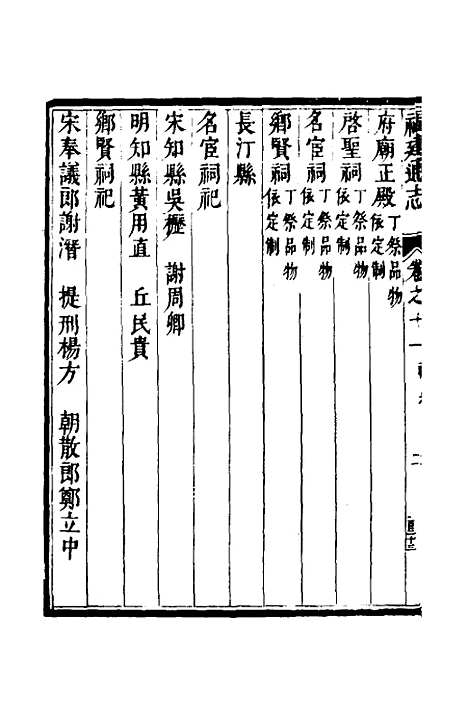 福建通志 卷之十一
府廟正殿丁祭品物依定制
啓聖祠丁祭品物依定制
名宦祠丁祭品物依定制
鄉賢祠丁祭品物依定制
長汀縣
名宦祠祀
宋知縣吳櫪 謝周卿
明知縣黃用直 丘民貴
鄉賢祠祀
宋奉議郎謝潛 提刑楊方 朝散郎鄭立中